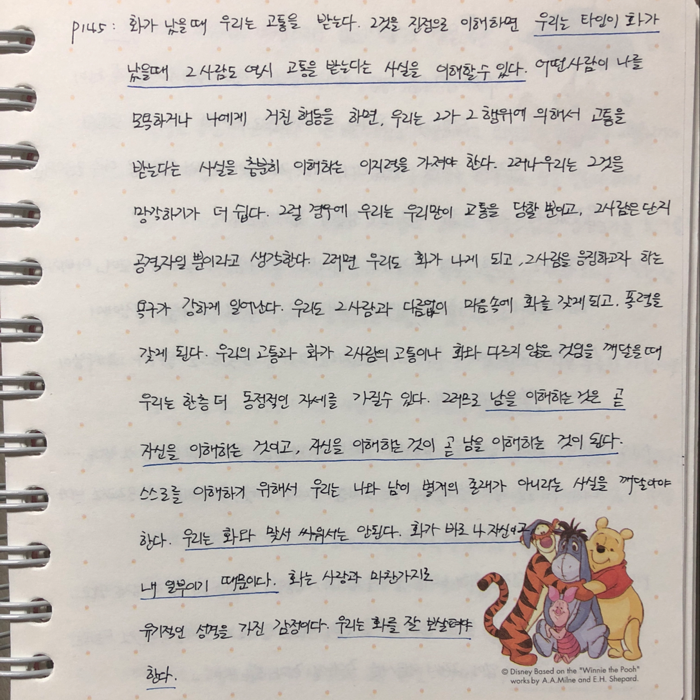 p145: 화가 났을때 우리는 고통을 받는다. 그것을 진정으로 이해하면 우리는 타인이 화가
났을때 그사람도 역시 고통을 받는다는 사실을 이해할수 있다. 어떤사람이 나를
모욕하거나 나에게 거친 행동을 하면, 우리는 그가 그 행위에 의해서 고통을
받는다는 사실을 충분히 이해하는 이지력을 가져야 한다. 그러나 우리는 그것을
망각하기가 더 쉽다. 그럴 경우에 우리는 우리만이 고통을 당할 뿐이고, 그사람은 단지
공격자일 뿐이라고 생각한다. 그러면 우리도 화가 나게 되고, 그사람을 응징하고자 하는
욕구가 강하게 일어난다. 우리도 그사람과 다름없이 마음속에 화를 갖게되고, 폭력을
갖게 된다. 우리의 고통과 화가 그사람의 고통이나 화와 다르지 않은 것임을 깨달을때
우리는 한층 더 동정적인 자세를 가질수 있다. 그러므로 남을 이해하는 것은 곧
자신을 이해하는 것이고, 자신을 이해하는 것이 곧 남을 이해하는 것이 된다.
스스로를 이해하기 위해서 우리는 나와 남이 별개의 존재가 아니라는 사실을 깨달아야
한다. 우리는 화와 맞서 싸워서는 안된다. 화가 바로 나 자신이고
내 일부이기 때문이다. 화는 사랑과 마찬가지로
유기적인 성격을 가진 감정이다. 우리는 화를 잘 보살펴야
한다.
© Disney Based on the "Winnie the Pooh"
works by A.A.Milne and E.H. Shepard.